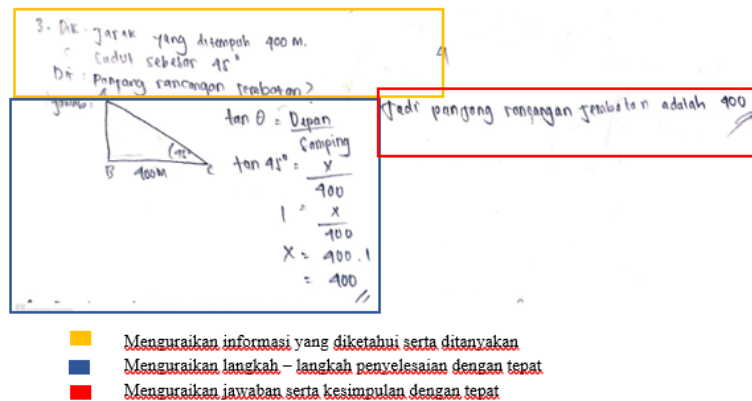 3. Dik. Jarak yang ditempuh 400 m.
Sudut sebesar 45°
Dit : Panjang rancangan jembatan?
Jawab : A
tan θ = Depan
Samping
(45°
B 400M C
tan 45° = x
400
1 = x
400
X = 400.1
= 400
Jadi panjang rancangan jembatan adalah 400
Menguraikan informasi yang diketahui serta ditanyakan
Menguraikan langkah – langkah penyelesaian dengan tepat
Menguraikan jawaban serta kesimpulan dengan tepat